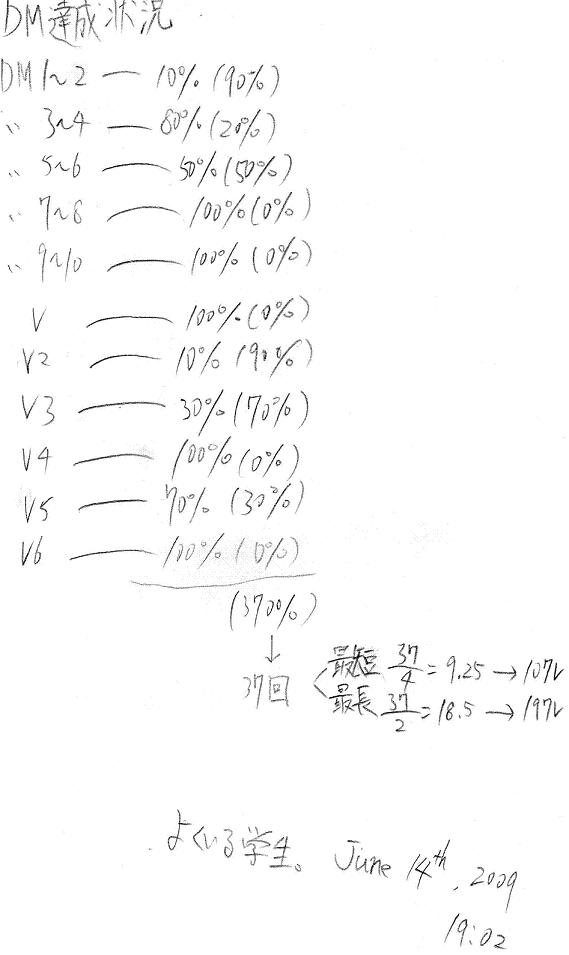 DM達成状況
DM1~2 — 10% (90%)
〃 3~4 — 80% (20%)
〃 5~6 — 50% (50%)
〃 7~8 — 100% (0%)
〃 9~10 — 100% (0%)
V — 100% (0%)
V2 — 10% (90%)
V3 — 30% (70%)
V4 — 100% (0%)
V5 — 70% (30%)
V6 — 100% (0%)
(370%)
↓
37回 < 最短 37/4 = 9.25 → 10クレ
最長 37/2 = 18.5 → 19クレ
よくいる学生。 June 14th, 2009
19:02